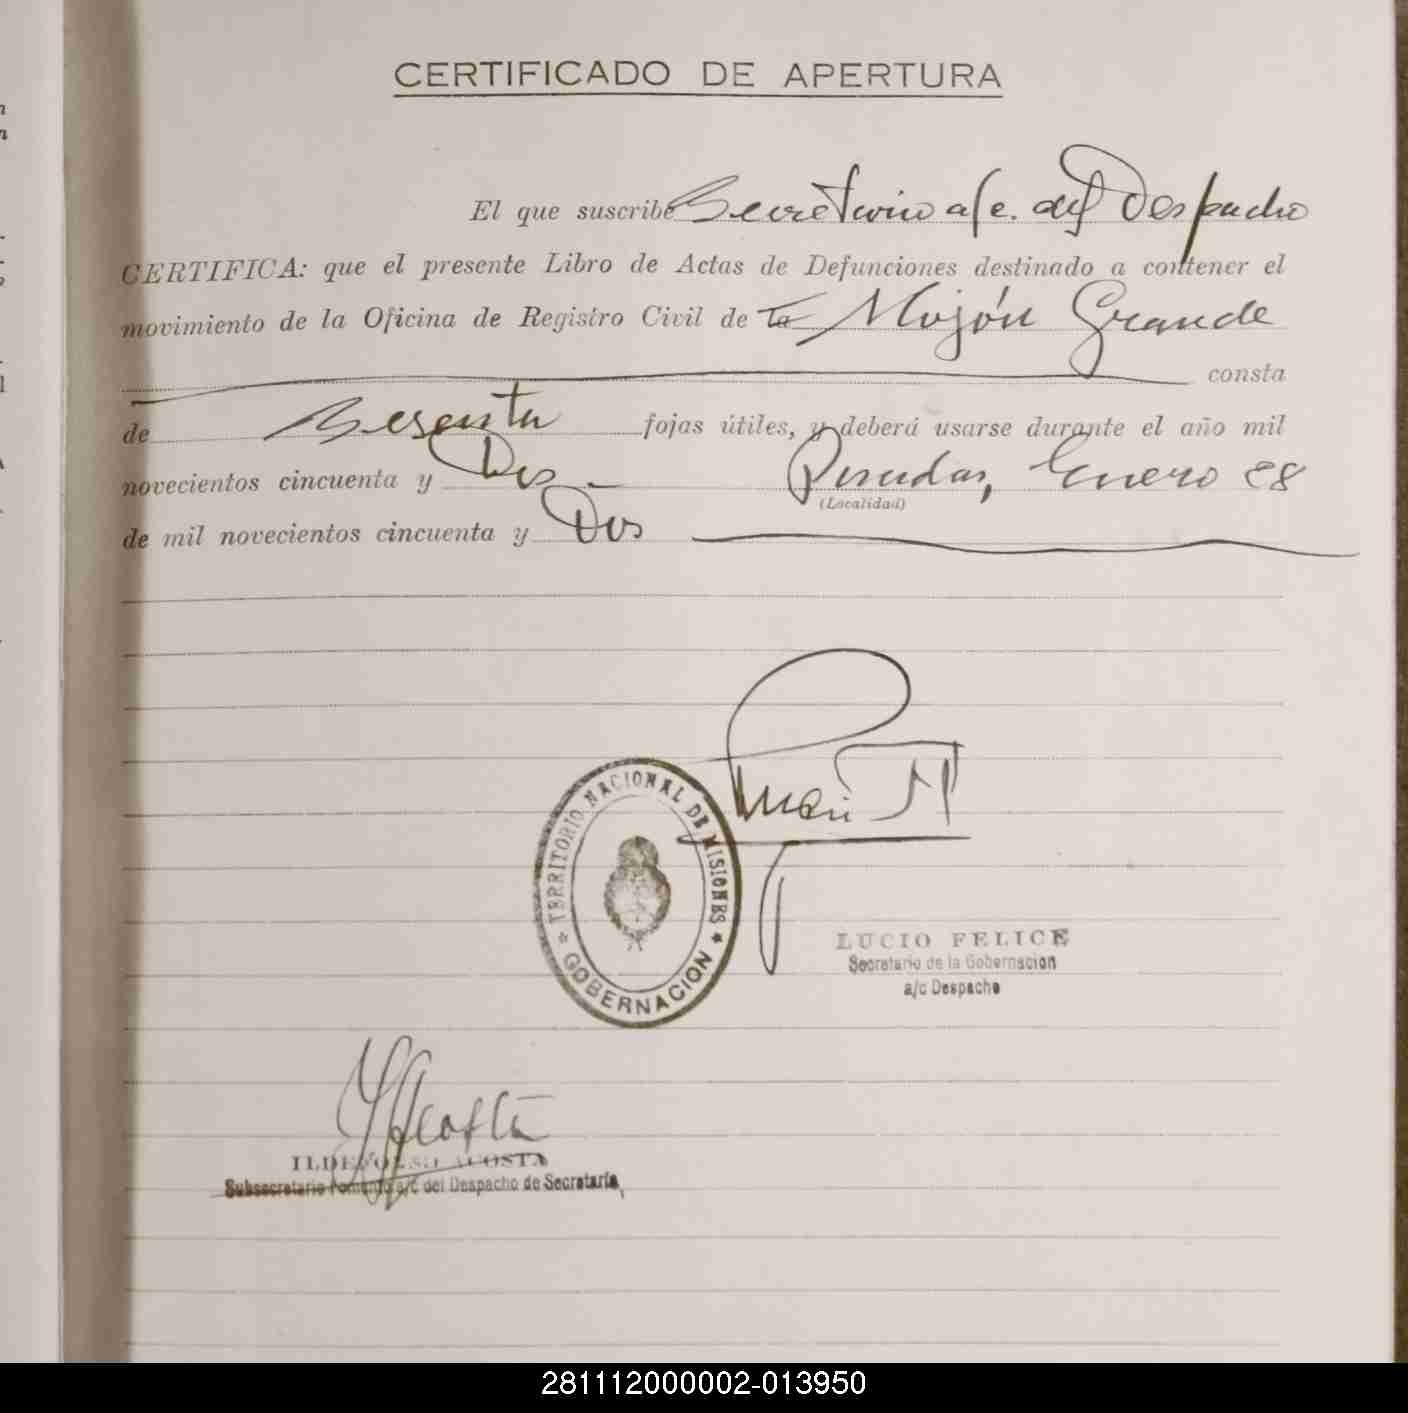 CERTIFICADO DE APERTURA
El que suscribe Secretario a/c. del Despacho
CERTIFICA: que el presente Libro de Actas de Defunciones destinado a contener el
movimiento de la Oficina de Registro Civil de la Mojón Grande
consta
de Sesenta fojas útiles, y deberá usarse durante el año mil
novecientos cincuenta y Dos Posadas, Enero 28
(Localidad)
de mil novecientos cincuenta y Dos
TERRITORIO NACIONAL DE MISIONES
GOBERNACION
LUCIO FELICE
Secretario de la Gobernacion
a/c Despacho
ILDEFONSO ACOSTA
Subsecretario Fomento a/c del Despacho de Secretaría,
281112000002-013950